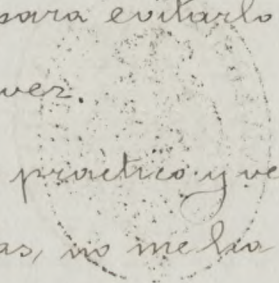 para evitarlo
ver.
practico y ve
as, no me ha